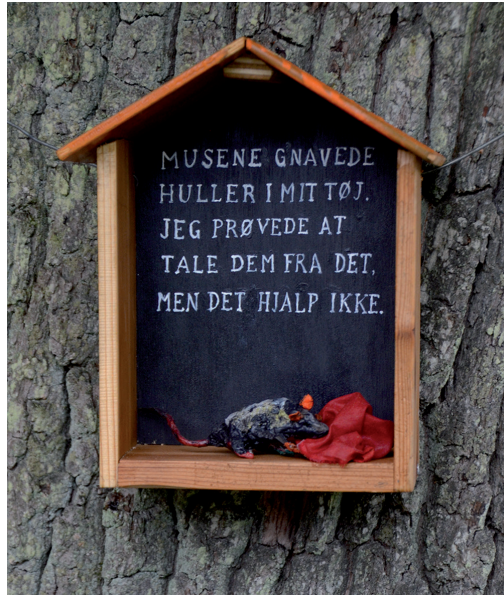 MUSENE GNAVEDE
HULLER I MIT TØJ.
JEG PRØVEDE AT
TALE DEM FRA DET,
MEN DET HJALP IKKE.